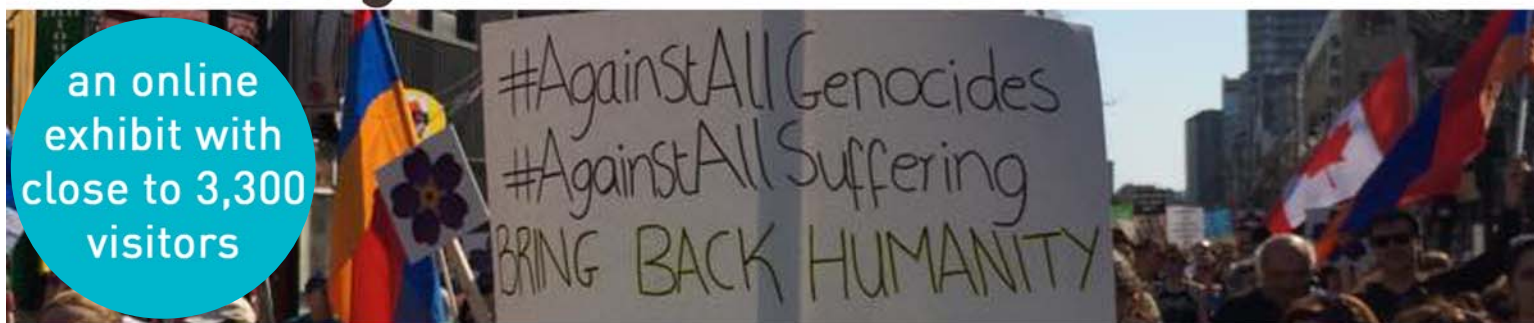 an online
exhibit with
close to 3,300
visitors
#AgainstAllGenocides
#AgainstAllSuffering
BRING BACK HUMANITY